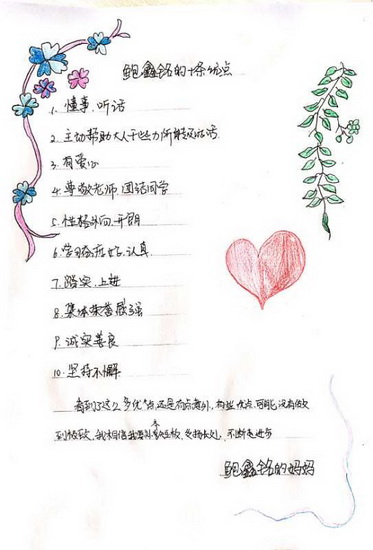 鲍鑫铭的十条优点
1. 懂事、听话
2. 主动帮助大人干些力所能及的活
3. 有爱心
4. 尊敬老师、团结同学
5. 性格外向、开朗
6. 学习态度好、认真
7. 踏实、上进
8. 集体荣誉感强
9. 诚实善良
10. 坚持不懈
看到了这么多优点，还是有点意外，有些优点，可能没有做
到极致，我相信我 发扬长处，不断走进步
鲍鑫铭的妈妈